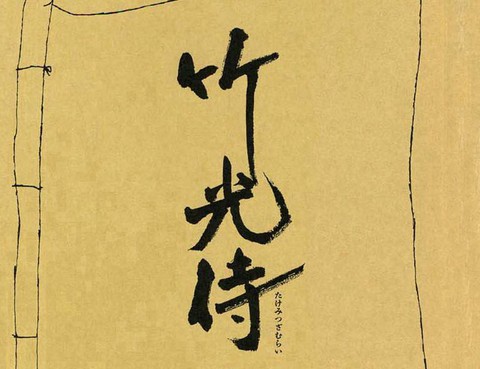 竹光侍
たけみつざむらい